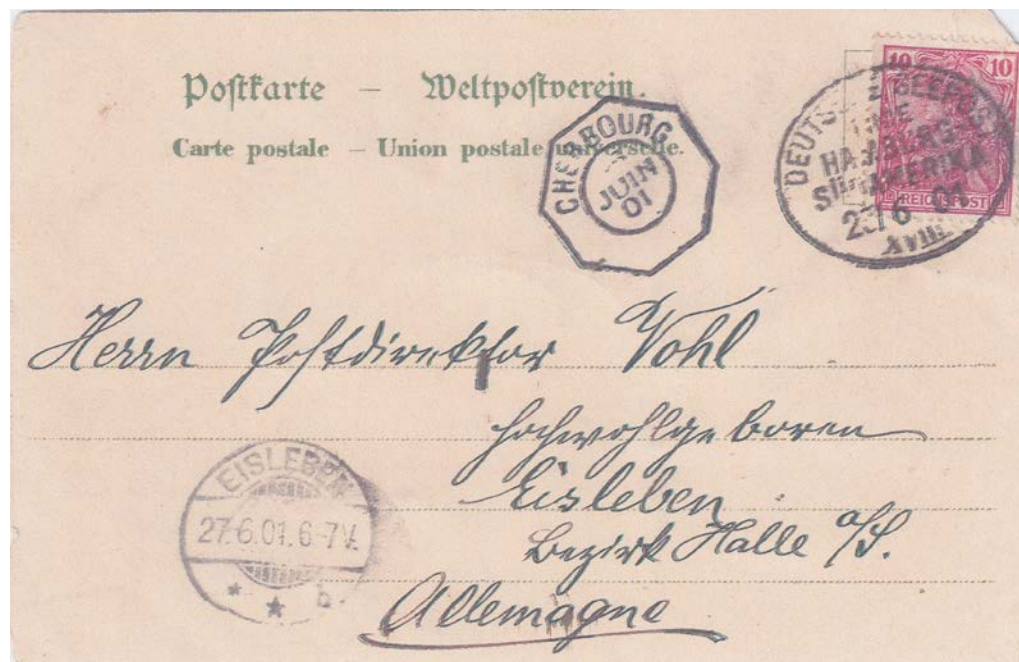 Postkarte – Weltpostverein.
Carte postale – Union postale universelle.
CHERBOURG
JUIN
01
10 10
REICHSPOST
DEUTSCHE SEEPOST
LINIE
HAMBURG-
SÜDAMERIKA
23/6 01
XVIII
Herrn Postdirektor Vohl
Hochwohlgeboren
Eisleben
Bezirk Halle a/S.
Allemagne
EISLEBEN
27.6.01.6-7V.
* * b.